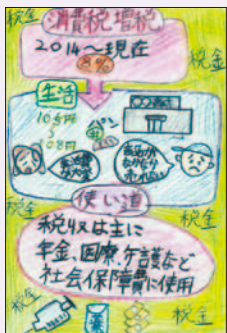 税金
消費税増税
2014〜現在
8%
税金
生活
パン
生活費が大変
使い道
税金
税金
税収は主に
年金、医療、介護など
社会保障費に使用
税金
税金